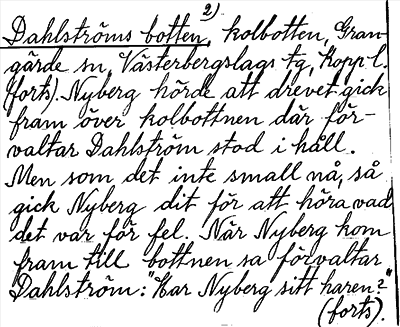 2)
Dahlströms botten, kolbotten, Gran-
gärde sn, Västerbergslags tg, Koppl.
(forts). Nyberg hörde att drevet gick
fram över kolbottnen där för-
valtar Dahlström stod i håll.
Men som det inte small nå, så
gick Nyberg dit för att höra vad
det var för fel. När Nyberg kom
fram till bottnen sa förvaltar
Dahlström: "Har Nyberg sitt haren?"
(forts).